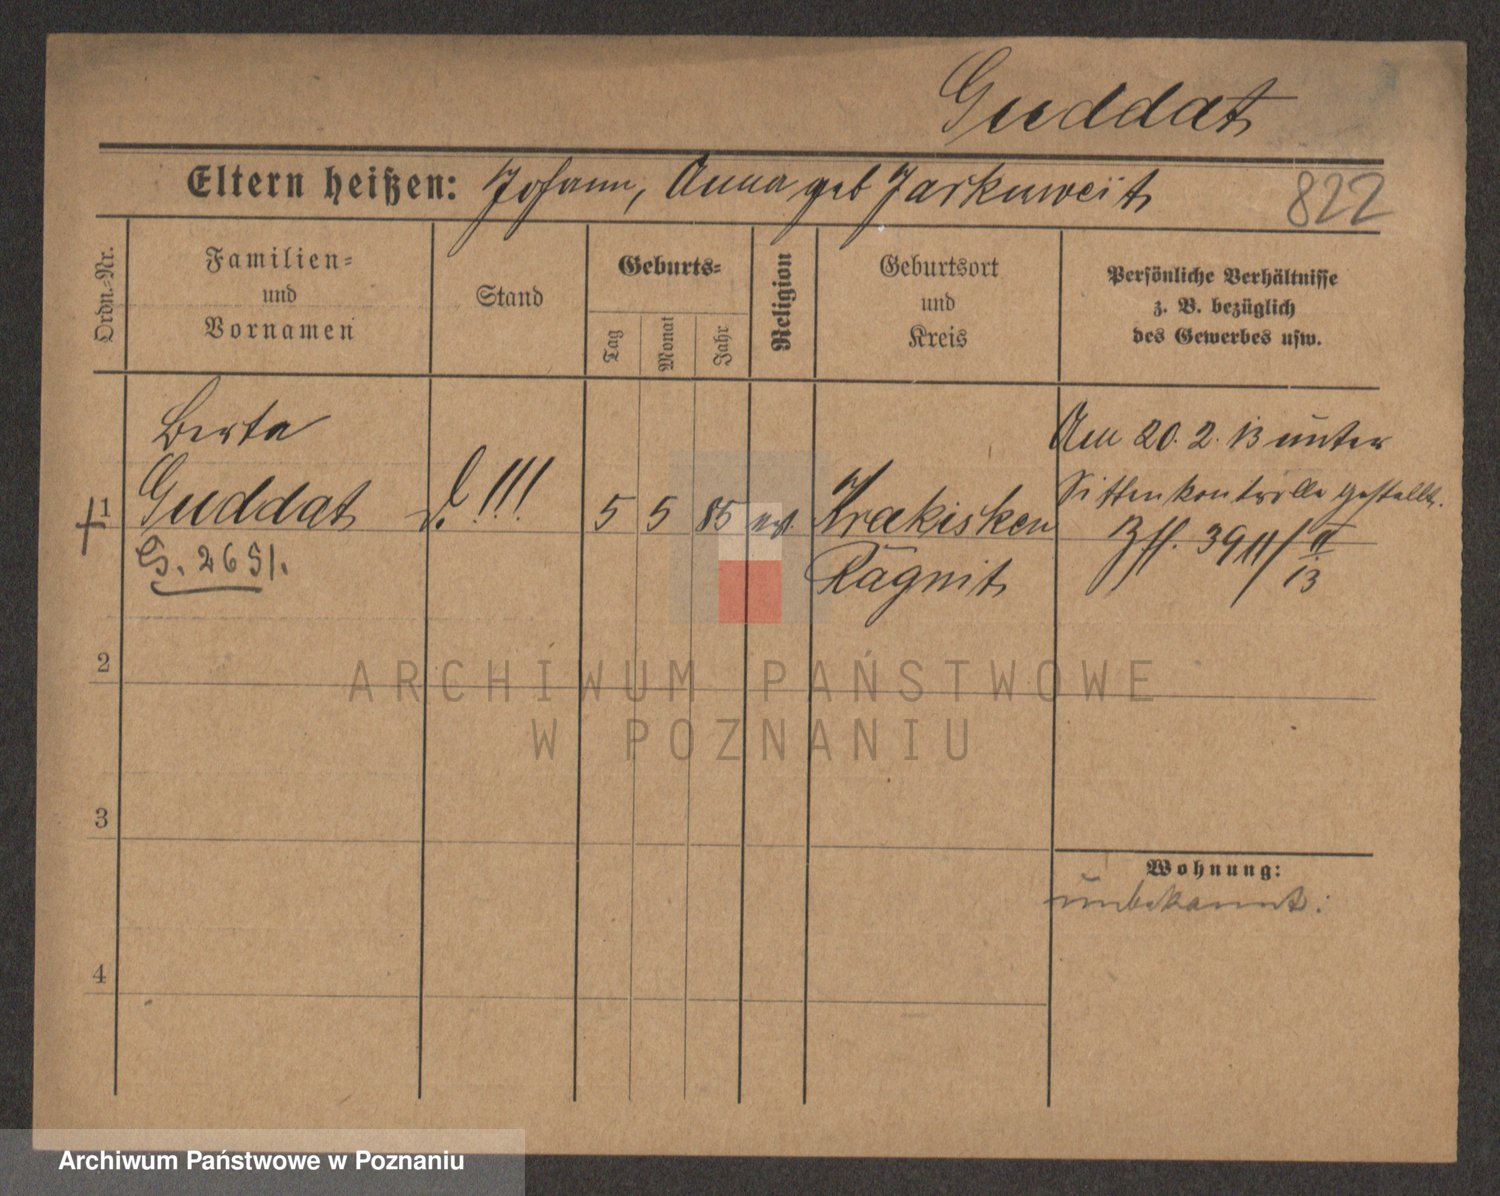 Guddat
Eltern heißen: Johann, Anna geb Jarkuweit
822
Ordn.-Nr.
Familien-
und
Vornamen
Stand
Geburts-
Tag
Monat
Jahr
Religion
Geburtsort
und
Kreis
Persönliche Verhältnisse
z. B. bezüglich
des Gewerbes usw.
Berta
Am 20. 2. 13 unter
1 Guddat !!! 5 5 85 ev. Krakischken
Sittenkontrolle gestellt.
G. 2651.
Ragnit
2
3
4
Wohnung:
unbekannt.
ARCHIWUM PAŃSTWOWE
W POZNANIU
Archiwum Państwowe w Poznaniu